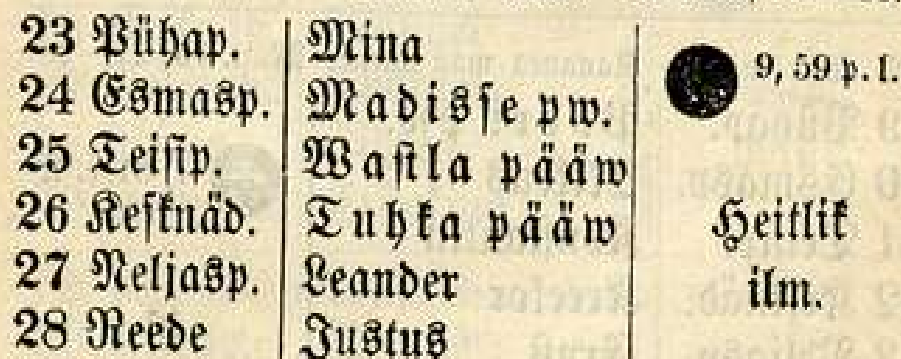 23 Pühap. Mina
24 Esmasp. Madisse pw. 9, 59 p. l.
25 Teisip. Wastla pääw
26 Kesknäd. Tuhka pääw Heitlik
27 Neljasp. Leander ilm.
28 Reede Justus